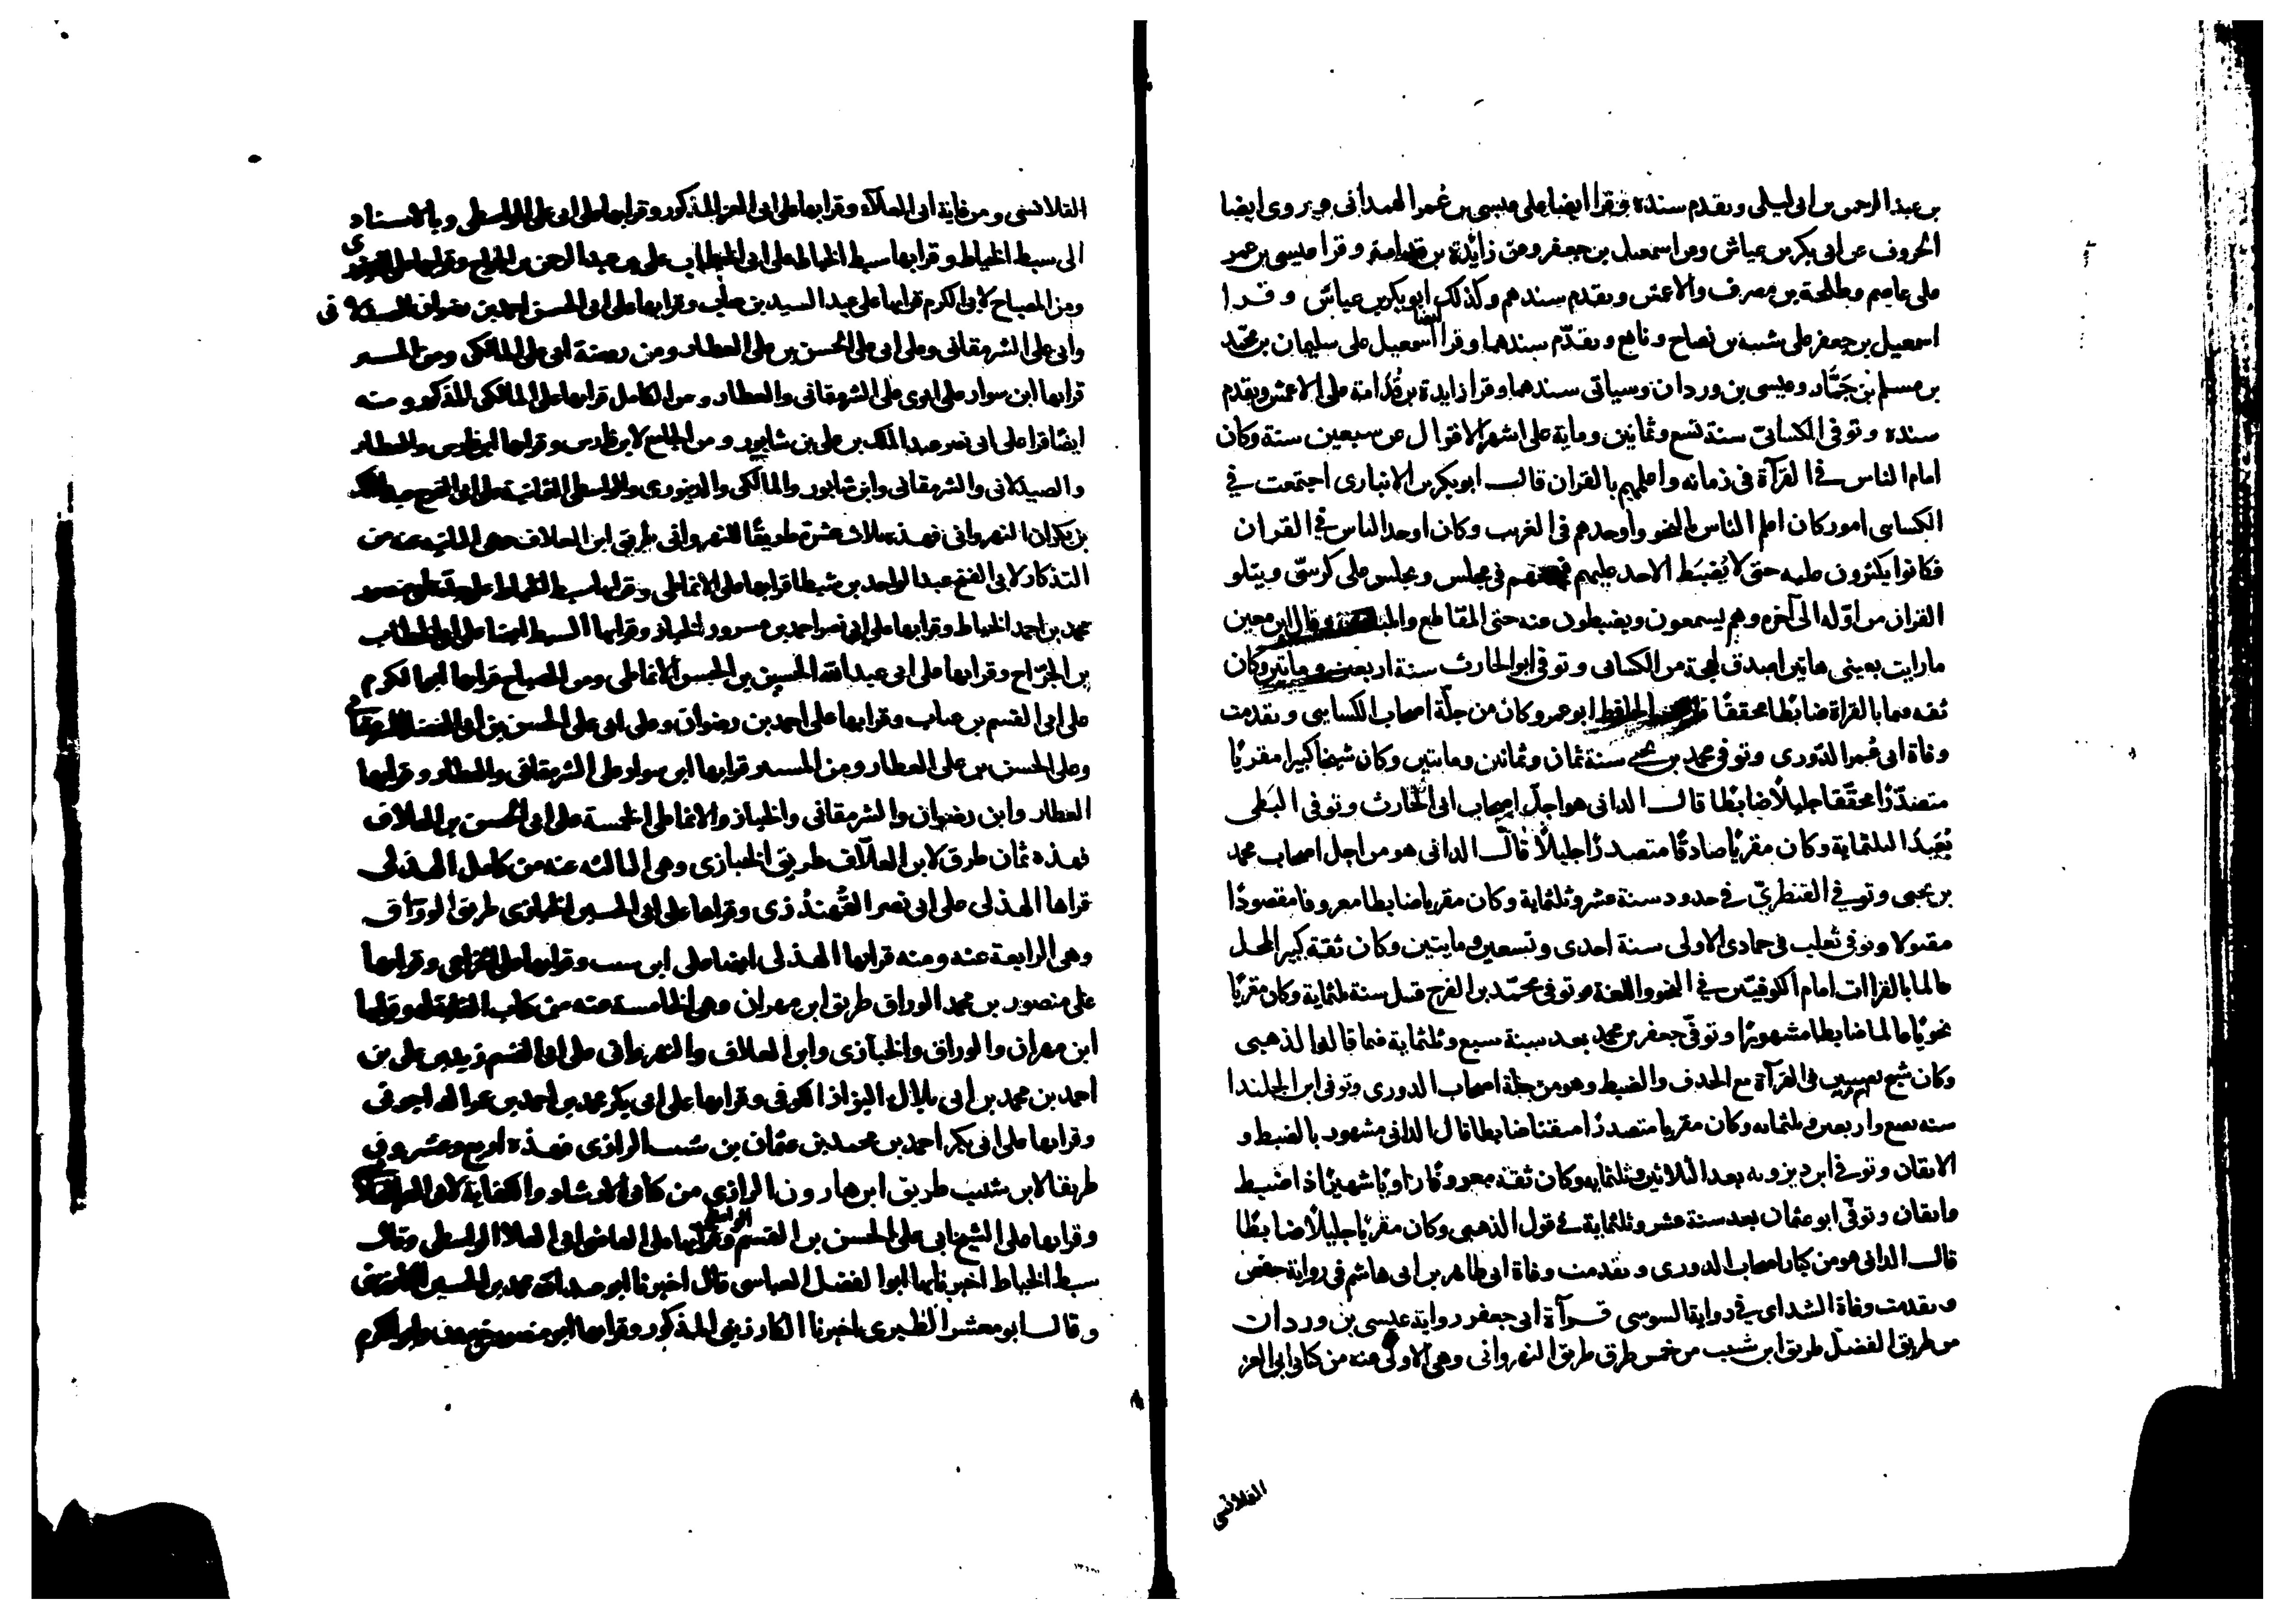 بن عبد الرحمن بن ابى ليلى وتقدم سنده وقرا ايضا على عيسى بن عُمر الهمدانى وروى ايضا
الحروف عن ابى بكر بن عياش وعن اسمعيل بن جعفر وعن زائدة بن قدامة وقرا عيسى بن عمر
على عاصم وطلحة بن مصرف والاعمش وتقدم سندهم وكذلك ابو بكر بن عياش وقرا
اسمعيل بن جعفر على شيبة بن نصاح ونافع وتقدّم سندهما وقرا ايضا اسمعيل على سليمان بن محمّد
بن مسلم بن جَمَّاز وعيسى بن وردان وسياتى سندهما وقرا زايدة بن قُدَامة على الاعمش وتقدم
سنده وتوفى الكسائىّ سنة تسع وثمانين وماية على اشهر الاقوال عن سبعين سنة وكان
امام الناس فى القرآة فى زمانه واعلمهم بالقران قالـــ ابو بكر بن الانبارى اجتمعت فى
الكساى امور كان اعلم الناس بالنحو واوحدهم فى الغريب وكان اوحد الناس فى القران
فكانوا يكثرون عليه حتى لا يُضبَط الاخذ عليهم فى مجلس ويجلس على كرسىّ ويتلو
القران من اوّله الى آخره وهم يسمعون ويضبطون عنه حتى المقاطع والمبادى وقال ابن معين
ما رايت بعينى هاتين اصدق لهجة من الكساى وتوفى ابو الحارث سنة اربعين وماتين وكان
ثقه قيما بالقراة ضابطًا محققًا قال الحافظ ابو عمرو كان من جلّة اصحاب الكساىى وتقدمت
وفاة ابى عُمر الدّورى وتوفى محمد بن يحيى سَنة ثمان وثمانين ومايتين وكان شيخا كبيرا مقريًا
متصدّرًا محقّقا جليلًا ضابطًا قالــ الدانى هو اجلّ اصحاب ابى الحارث وتوفى البَطى
بُعَيدَ الثلثماية وكان مقريًا صادقًا متصدرًا جليلًا قالــ الدانى هو من اجل اصحاب محمد
بن يحيى وتوفى القنطرىّ فى حدود سنة عشر وثلثماية وكان مقريا ضابطا معروفا مقصودًا
مقبولا وتوفى ثعلب فى جمادى الاولى سنة احدى وتسعين ومايتين وكان ثقة كبير المحل
عالما بالقراات امام الكوفيّين فى النحو واللغة وتوفى محمّد بن الفرج قبيل سنة ثلثماية وكان مقريًا
نحويًا عالما ضابطا مشهورًا وتوفّى جعفر بن محمد بعد سنة سبع وثلثماية فيما قاله الذهبى
وكان شيخ نصيبين فى القرآة مع الحذف والضبط وهو من جلة اصحاب الدورى وتوفى ابن الجلندا
سنه بضع واربعين وثلثمايه وكان مقريا متصدرًا متقنا ضابطا قال الدانى مشهور بالضبط و
الاتقان وتوفى ابن ديزويه بعد الثلاثين وثلثمايه وكان ثقة معروفًا راويًا شهيرًا ذا ضبط
واتقان وتوفّى ابو عثمان بعد سنة عشر وثلثماية فى قول الذهبى وكان مقريًا جليلًا ضابطًا
قالــ الدانى هو من كبار اصحاب الدورى وتقدمت وفاة ابى طاهر بن ابى هاشم فى رواية حفص
وتقدمت وفاة الشذاى فى رواية السوسى قـرآة ابى جعفر رواية عيسى بن وردان
من طريق الفضل طريق ابن شبيب من خمس طرق طريق النهروانى وهى الاولى عنه من كتابى ابى العز
القلانسى
القلانسى ومن غاية ابى العلآء وقرا بها على ابى العز المذكور وقرا بها على ابى على الواسطى وبالاسناد
الى سبط الخياط وقرا بها سبط الخياط على ابى الخطاب على بن عبد الرحمن بن الجراح وقرا بها على
ومن المصباح لابى الكرم قرا بها على عبد السيد بن عتاب وقرا بها على ابى الحسن احمد بن رضوان
وابى على الشرمقانى وعلى ابى على الحسن بن على العطار ومن روضة ابى على المالكى ومن المستنير
قرا بها ابن سوار على ابوى على الشرمقانى والعطار ومن الكامل قرا بها على المالكى المذكور ومنه
ايضًا قرا على ابى نصر عبد الملك بن على بن شابور ومن الجامع لابن فارس وقرا بها ابن فارس والعطار
والصيدلانى والشرمقانى وابن شابور والمالكى والدينورى والواسطى الثمانية على ابى الفرج عبد الملك
بن بكران النهروانى فهذه ثلاث عشرة طريقًا للنهروانى طريق ابن العلاف وهى الثانيه عنه من
التذكار لابى الفتح عبد الواحد بن شيطا قرا بها على الانماطى وقرا بها سبط الخياط على جده ابى منصور
محمد بن احمد الخياط وقرا بها على ابى نصر احمد بن مسرور الخباز وقرا بها السبط ايضا على ابى الخطاب
بن الجرّاح وقرا بها على ابى عبد الله الحسين بن الحسن الانماطى ومن المصباح قرا بها ابو الكرم
على ابى القسم بن عتاب وقرا بها على احمد بن رضوان وعلى ابى على الحسن بن ابى الفضل الشرمقانى
وعلى الحسن بن على العطار ومن المستنير قرا بها ابن سوار على الشرمقانى والعطار وقرا بها
العطار وابن رضوان والشرمقانى والخباز والانماطى الخمسة على ابى الحسن بن العلاف
فهذه ثمان طرق لابن العلّاف طريق الخبازى وهى الثالثه عنه من كامل الهذلى
قراها الهذلى على ابى نصر القُهُنْدُزى وقراها على ابى الحسين الخبازى طريق الورّاق
وهى الرابعة عنه ومنه قرا بها الهذلى ايضا على ابن شبيب وقرا بها على الخزاعى وقرا بها
على منصور بن محمد الوراق طريق ابن مهران وهى الخامسة عنه من كتاب الغاية له وقرا بها
ابن مهران والوراق والخبّازى وابن العلاف والنهروانى على ابى القسم زيد بن على بن
احمد بن محمد بن ابى بلال البزاز الكوفى وقرا بها على ابى بكر محمد بن احمد بن عمر الداجونى
وقرا بها على ابى بكر احمد بن محمد بن عثمان بن شبيب الرازى فهذه اربع وعشرون
طريقا لابن شبيب طريق ابن هارون الرازى من كتابى الارشاد والكفاية لابى العز
وقرا بها على الشيخ ابى على الحسن بن القسم الواسطى وقرا بها على القاضى ابى العلا الواسطى وقال
سبط الخياط اخبرنا بها ابو الفضل العباسى قال اخبرنا ابو عبد الله محمد بن الحسين الكارزينى
وقالــ ابو معشر الطبرى اخبرنا الكارزينى المذكور وقرا بها ابو منصور بن خيرون وابو الكرم